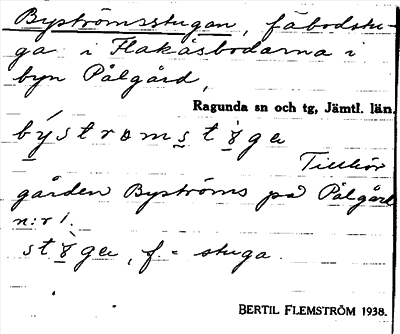 Byströmsstugan, fäbodstu-
ga i Flakåsbodarna i
byn Pålgård,
Ragunda sn och tg, Jämtl. län.
býstrɷmstɣ̀ga
Tillhör
gården Byströms på Pålgård
n:r 1.
stɣ̀ga, f. = stuga.
BERTIL FLEMSTRÖM 1938.